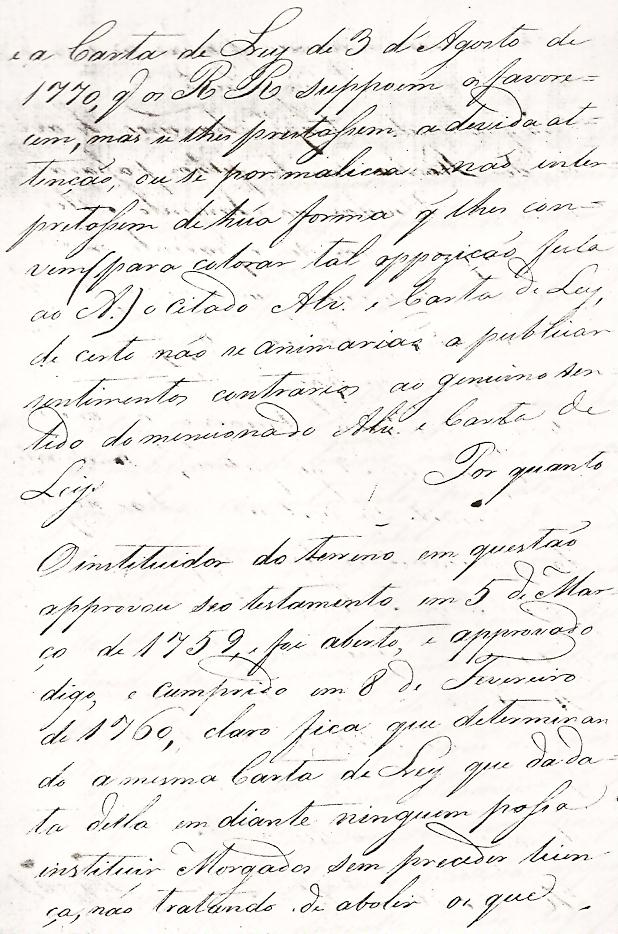 e a Carta de Ley de 3 d'Agosto de
1770, q̃ os R R suppoem os favore=
cem, mas se lhes prestassem a devida at-
tenção, ou se por malicia não inter
pretassem de húa forma q̃ lhes con-
vem (para colorar tal oppozição feita
ao A.) o citado Alv. e Carta de Ley,
de certo não se animarião a publicar
sentimentos contrarios ao genuino sen
tido do mencionado Alv. e Carta de
Ley. Por quanto
O instituidor do terreno em questão
approvou seo testamento em 5 de Mar-
ço de 1759, e foi aberto, e approvado
digo, e cumprido em 8 de Fevereiro
de 1760, claro fica que determinan
do a mesma Carta de Ley que da da-
ta della em diante ninguem possa
instituir Morgados sem preceder licen-
ça, não tratando de abolir os que